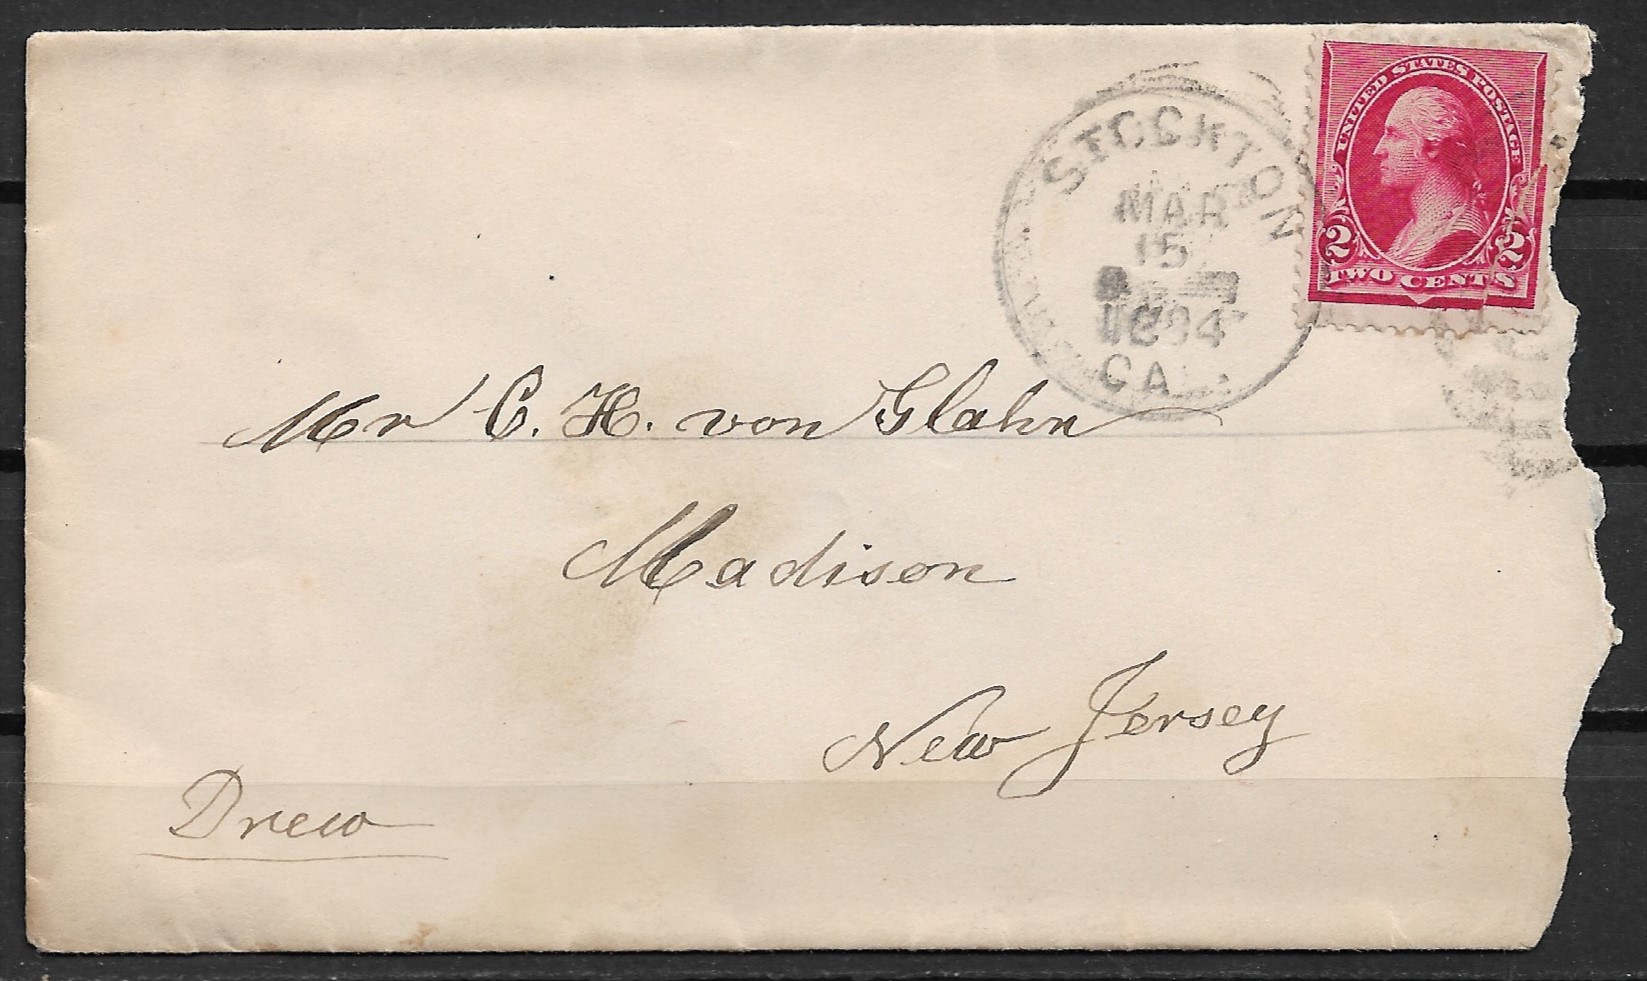 UNITED STATES POSTAGE
2 2
TWO CENTS
STOCKTON
MAR
15
1894
CAL.
Mr C. H. von Glahn
Madison
New Jersey
Drew